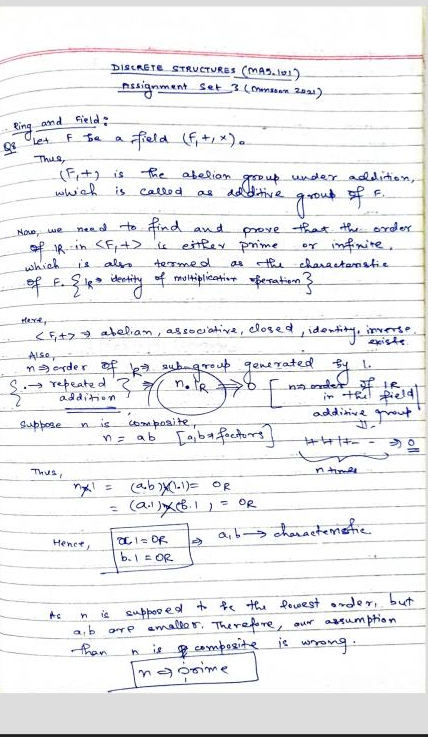 DISCRETE STRUCTURES (MAS.101)
Assignment Set 3 (Monsoon 2021)
Ring and Field:
Q8 Let F be a field (F,+,×).
Thus,
(F,+) is the abelian group under addition,
which is called as additive group of F.
Now, we need to find and prove that the order
of 1R in <F,+> is either prime or infinite,
which is also termed as the characteristic
of F. {1R → dentity of multiplication operation}
Here,
<F,+> → abelian, associative, closed, identity, inverse
exists
Also,
n → order of 1R → subgroup generated by 1.
{. → repeated addition} ⇒ n.1R → 0 [n → order of 1R in the field additive group]
Suppose n is composite,
n = ab [a,b → factors]
1+1+1+-- → 0
n times
Thus,
n×1 = (a.b)×(1.1) = 0R
= (a.1)×(b.1) = 0R
Hence,
a.1 = 0R
b.1 = 0R
⇒ a,b → characteristic
As n is supposed to be the lowest order, but
a,b are smaller. Therefore, our assumption
than n is composite is wrong.
n → prime